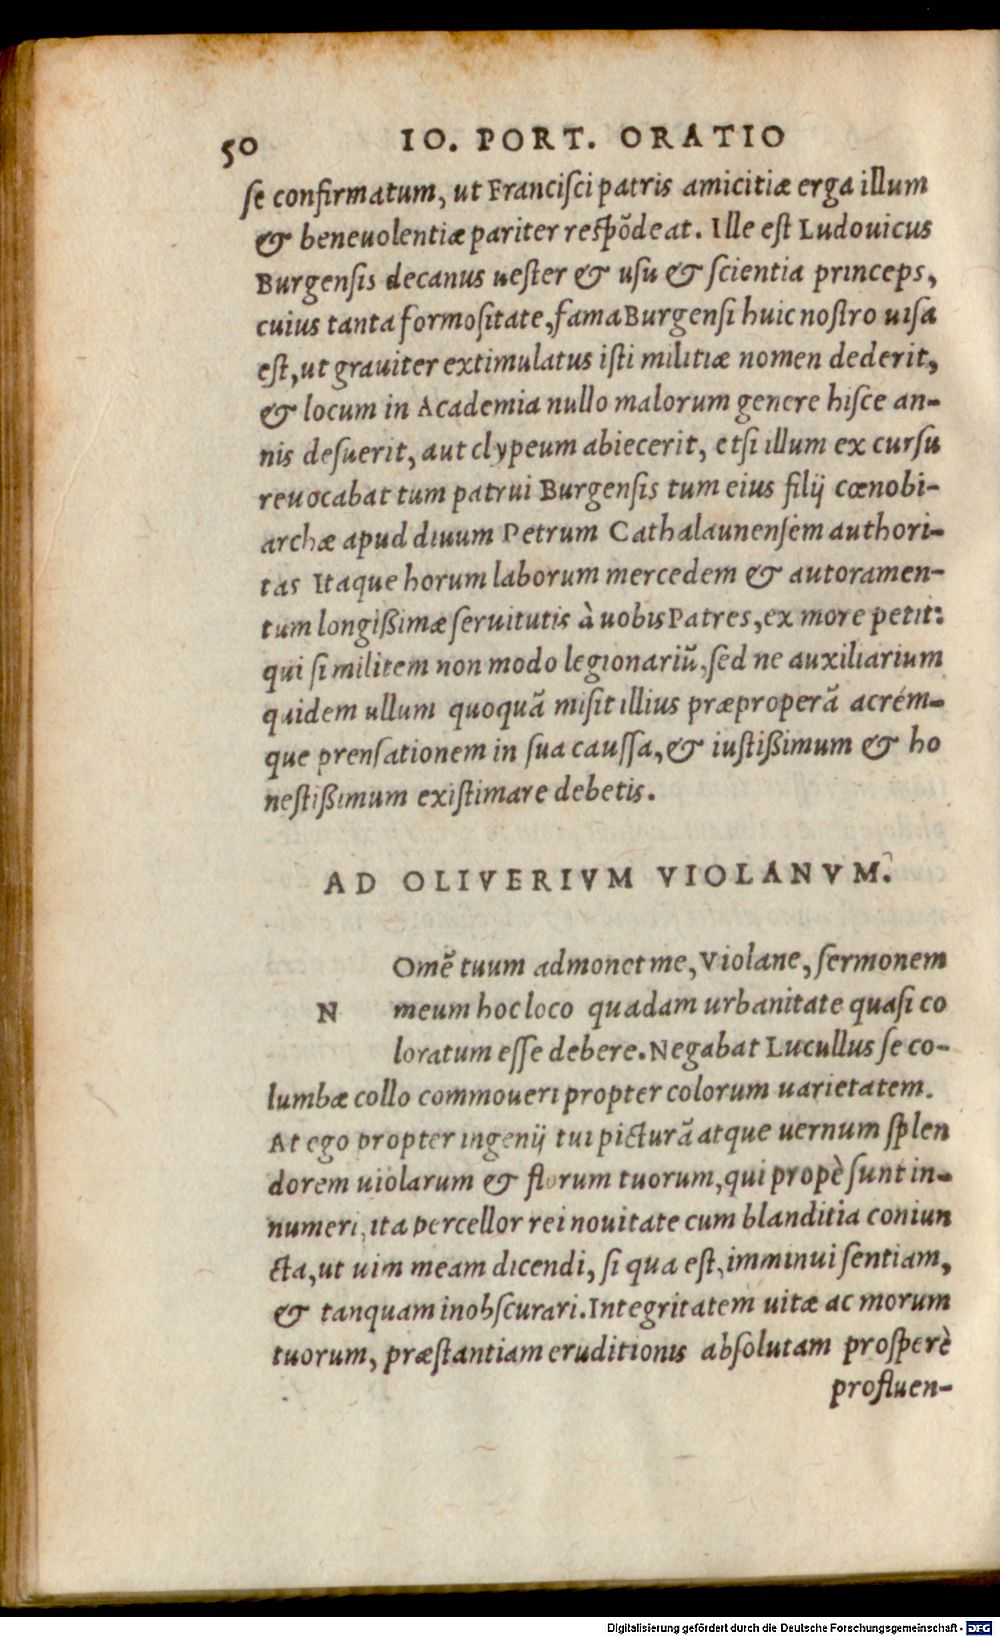 50 IO. PORT. ORATIO
se confirmatum, ut Francisci patris amicitiæ erga illum
& beneuolentiæ pariter respõdeat. Ille est Ludouicus
Burgensis decanus uester & usu & scientia princeps,
cuius tanta formositate, fama Burgensi huic nostro uisa
est, ut grauiter extimulatus isti militiæ nomen dederit,
& locum in Academia nullo malorum genere hisce an-
nis desuerit, aut clypeum abiecerit, etsi illum ex cursu
reuocabat tum patrui Burgensis tum eius filij cœnobi-
archæ apud diuum Petrum Cathalaunensem authori-
tas Itaque horum laborum mercedem & autoramen-
tum longißimæ seruitutis à uobis Patres, ex more petit:
qui si militem non modo legionariũ, sed ne auxiliarium
quidem ullum quoquã misit illius præproperã acrém-
que prensationem in sua caussa, & iustißimum & ho
nestißimum existimare debetis.
AD OLIVERIVM VIOLANVM.
Omẽ tuum admonet me, Violane, sermonem
N meum hoc loco quadam urbanitate quasi co
loratum esse debere. Negabat Lucullus se co-
lumbæ collo commoueri propter colorum uarietatem.
At ego propter ingenij tui picturã atque uernum splen
dorem uiolarum & florum tuorum, qui propè sunt in-
numeri, ita percellor rei nouitate cum blanditia coniun
cta, ut uim meam dicendi, si qua est, imminui sentiam,
& tanquam inobscurari. Integritatem uitæ ac morum
tuorum, præstantiam eruditionis absolutam prosperè
profluen-
Digitalisierung gefördert durch die Deutsche Forschungsgemeinschaft - DFG